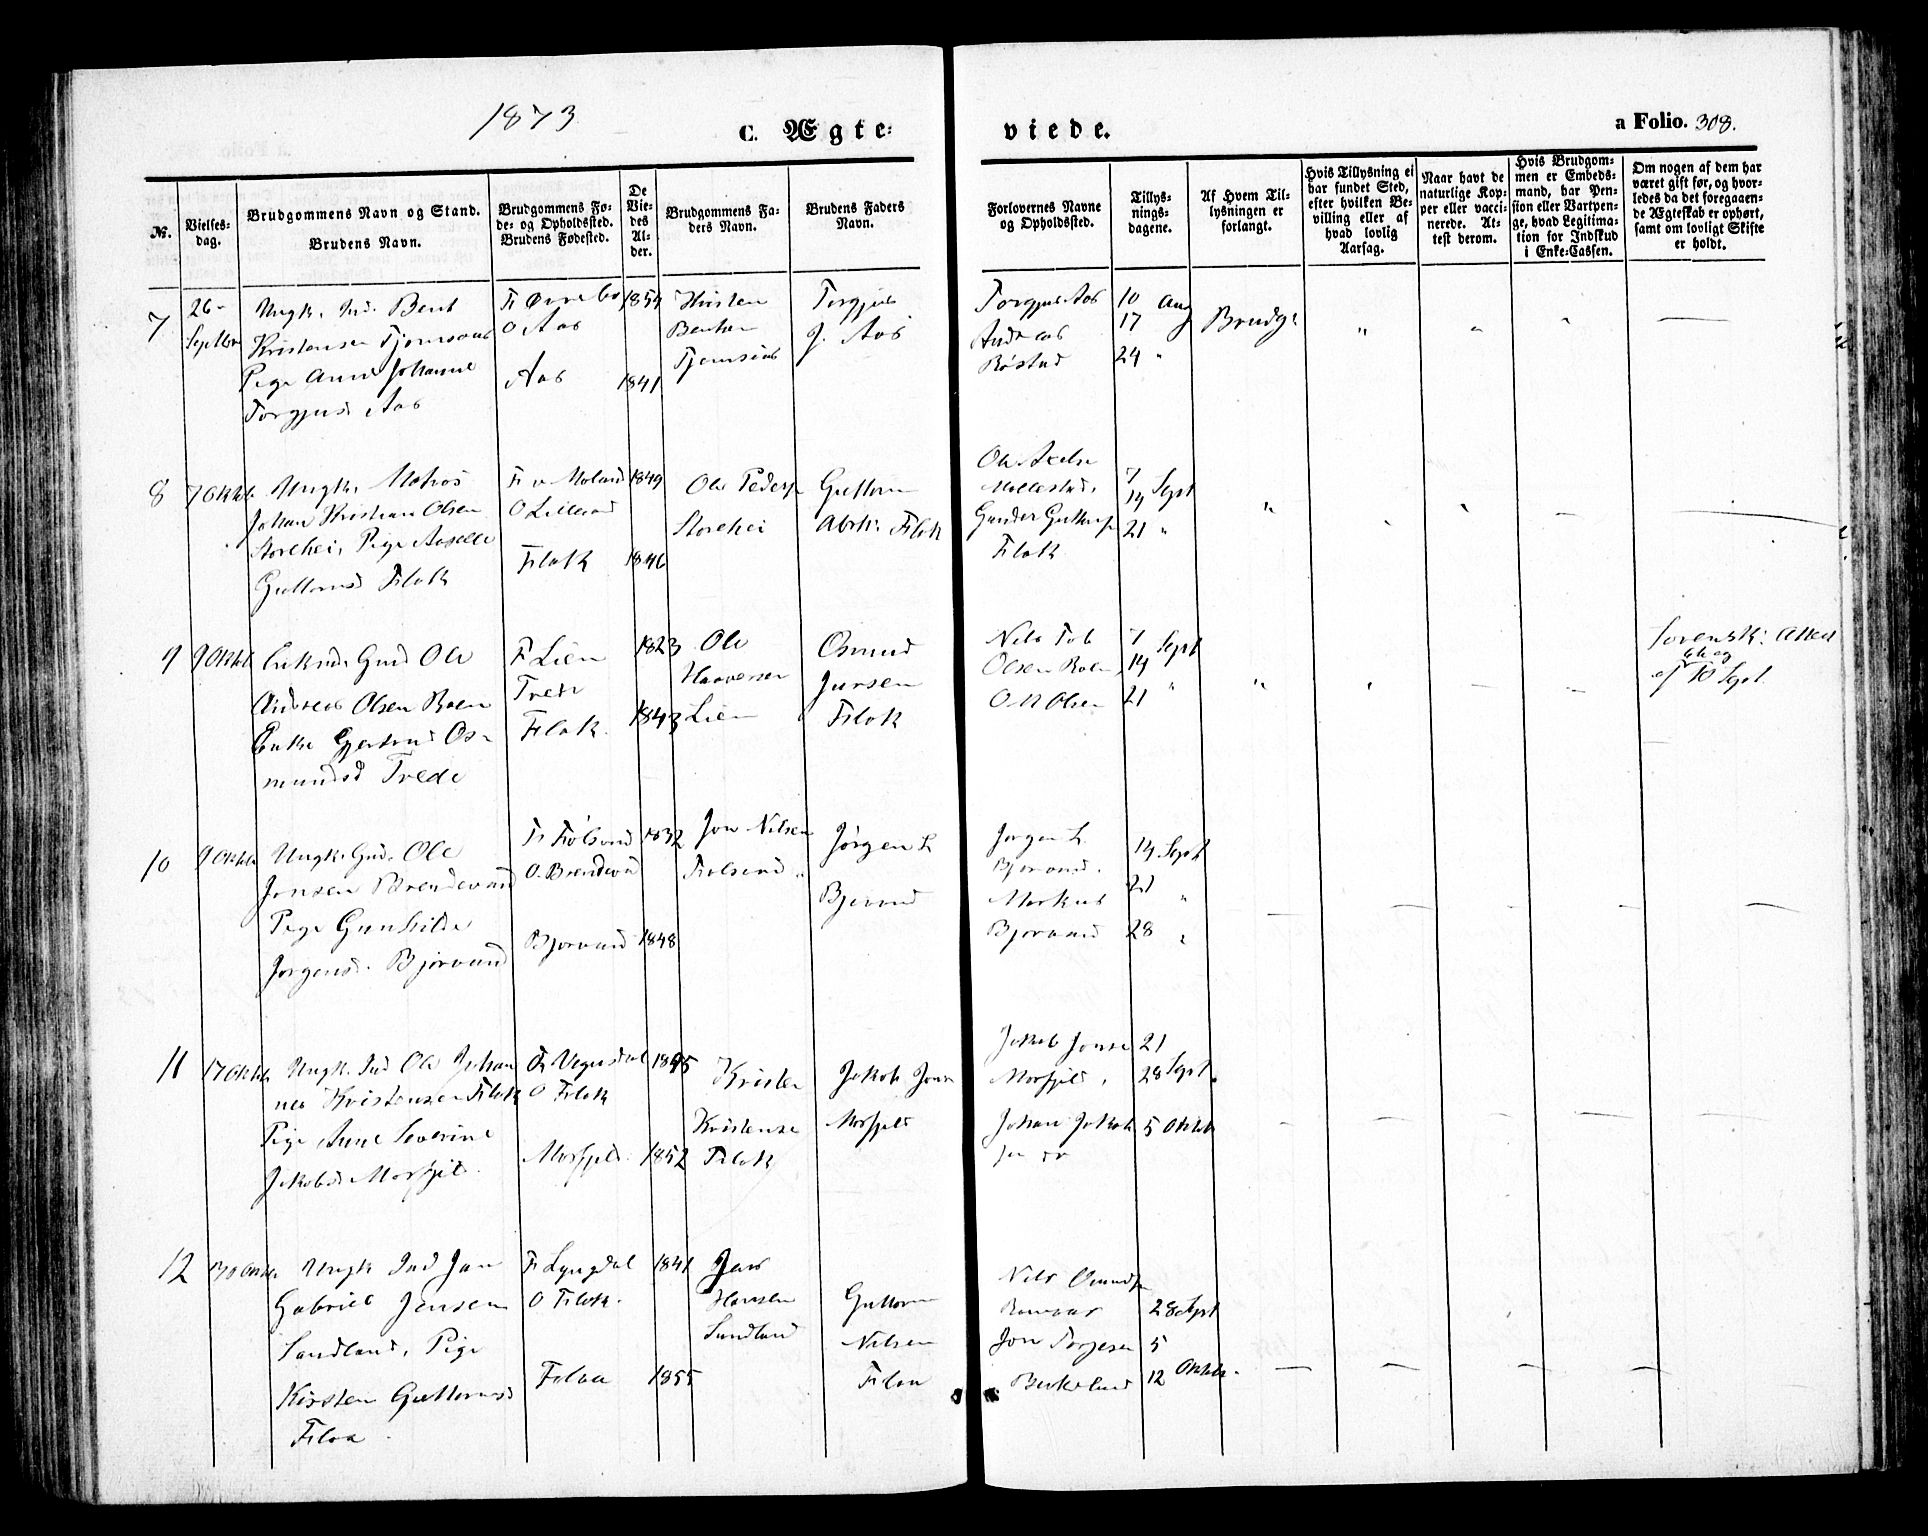 1873
C. Ægte-
viede.
a Folio. 308.
No.
Vielses-
dag.
Brudgommens Navn og Stand.
Brudens Navn.
Brudgommens Fø-
de- og Opholdssted.
Brudens Fødested.
De
Vie-
des
Al-
der.
Brudgommens Fa-
ders Navn.
Brudens Faders
Navn.
Forlovernes Navne
og Opholdssted.
Tillys-
nings-
dagene.
Af Hvem Til-
lysningen er
forlangt.
Hvis Tillysning ei
har fundet Sted,
efter hvilken Be-
villing eller af
hvad lovlig
Aarsag.
Naar havt de
naturlige Kop-
per eller vacci-
nerede. At-
test derom.
Hvis Brudgom-
men er Embeds-
mand, har Pen-
sion eller Vartpen-
ge, hvad Legitima-
tion for Indskud
i Enke-Cassen.
Om nogen af dem har
været gift før, og hvor-
ledes da det foregaaen-
de Ægteskab er ophørt,
samt om lovligt Skifte
er holdt.
7
26-
Septbr
Ungk. Ind. Bent
Kristensen
Pige Anne Johanne
Torgjusd Aas
O Aas
Aas
1854
1841
Kristen
Bentsen
Torgjus
J. Aas
Torgjus Aas
Andreas
Røstad
10 Aug
17
24 "
Brudg.
8
7 Oktb
Ungk. Matros
Johan Kristian Olsen
Storehei, Pige Aaselle
Guttormsd Flak
Flak
1849
1846
Ole Peders
Storehei
Guttorm
Abrh. Flak
Gunder Guttorms
Flak
7
14 Sept
21 "
9
9 Oktb
Enkm. Gmd Ole
Andreas Olsen Roen
Enke Gjertrud Os-
mundsd Trede
F Lien
Trede
Flak.
1823
1843
Ole
Haaversen
Lien
Osmund
Jursen
Flak
Nils Tob
Olsen Roen
O N Olsen
7
14 Sept
21 "
af 10 Sept.
10
9 Oktb
Ungk. Gmd. Ole
Jonsen Brendevand
Pige Gunhilde
Jørgensd. Bjørvand
O. Brendevd
Bjorvand
1832
1848
Jon Nilsen
Jørgen L
Bjorvand
Jørgen L.
Bjorvand.
Markus
Bjorvand
14 Sept
21 "
28 "
11
17 Oktb
Ungk. Ind Ole Johan
nes Kristensen Flak
Pige Anne Severine
Jakobsd Morfjeld.
O Flak
Morfjeld.
1845
1852
Kristen
Kristense
Flak
Jakob Jons
Morfjeld
Jakob Jonse
Morfjeld,
Johan Jakob
21
28 Sept.
5 Oktb
12
30 Oktb
Ungk Ind Jan
Gabriel Jensen
Sandland, Pige
Kirsten Guttormsd
Flaa
F Lyngdal
O Flak.
Flaa
1841
1855
Jens
Hansen
Sandland
Guttorm
Nilsen
Flaa
Nils
Jon Torjesen
Birkeland
28 Sept
5
12 Oktbr.